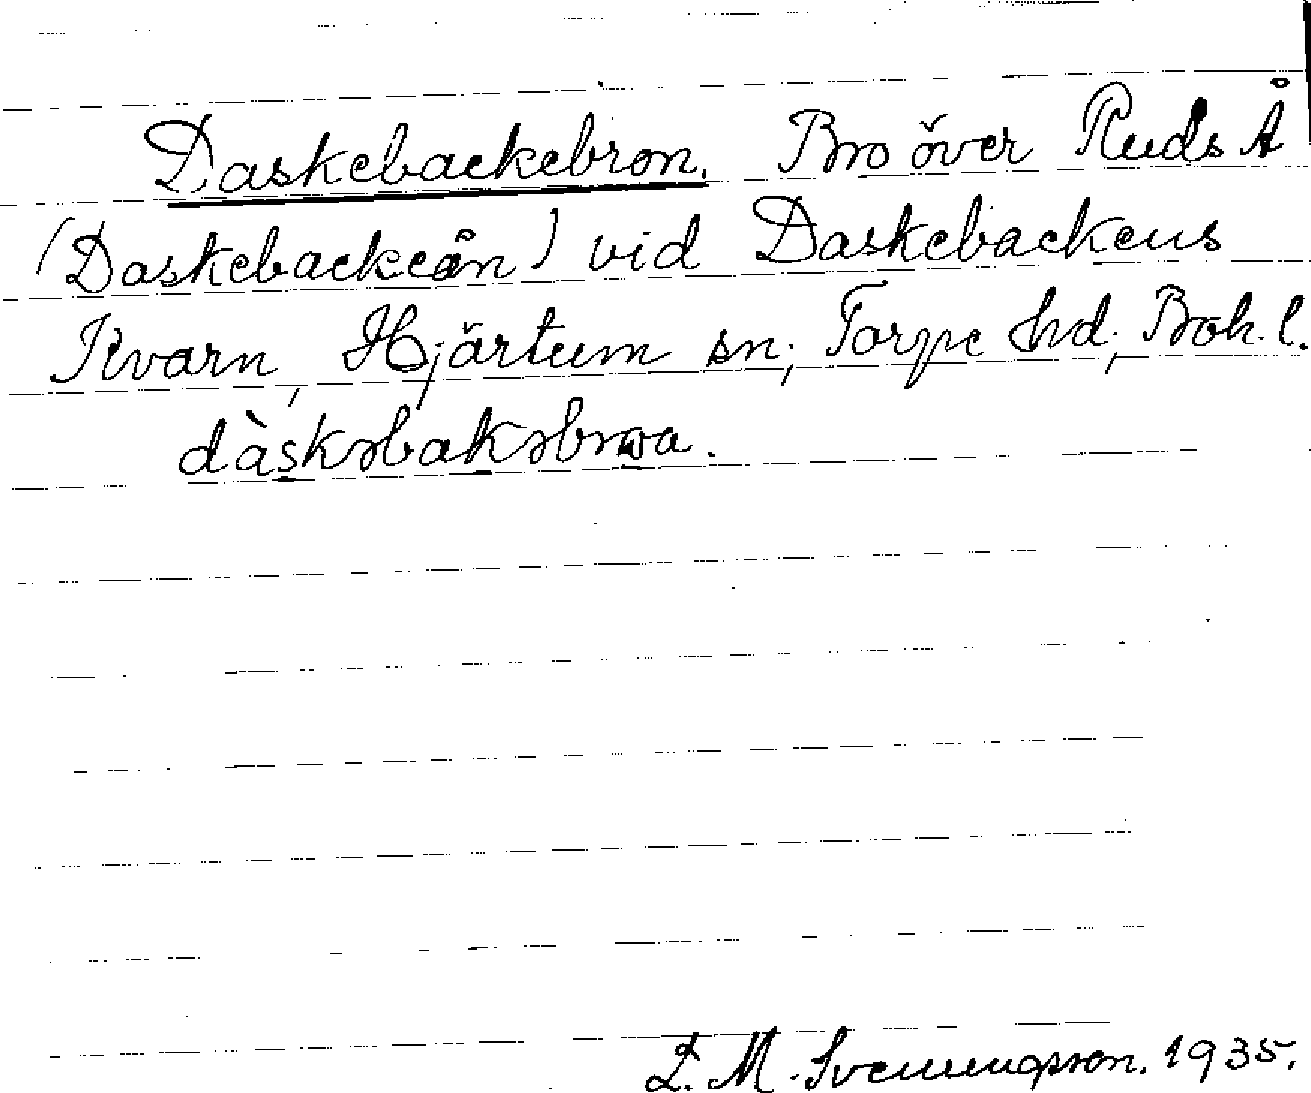 Daskebackebron. Bro över Ruds Å
(Daskebackeån) vid Daskebackens
Kvarn, Hjärtum sn; Torpe hd; Boh. l.
dàskəbakəbroa.
L. M. Svenungsson. 1935.